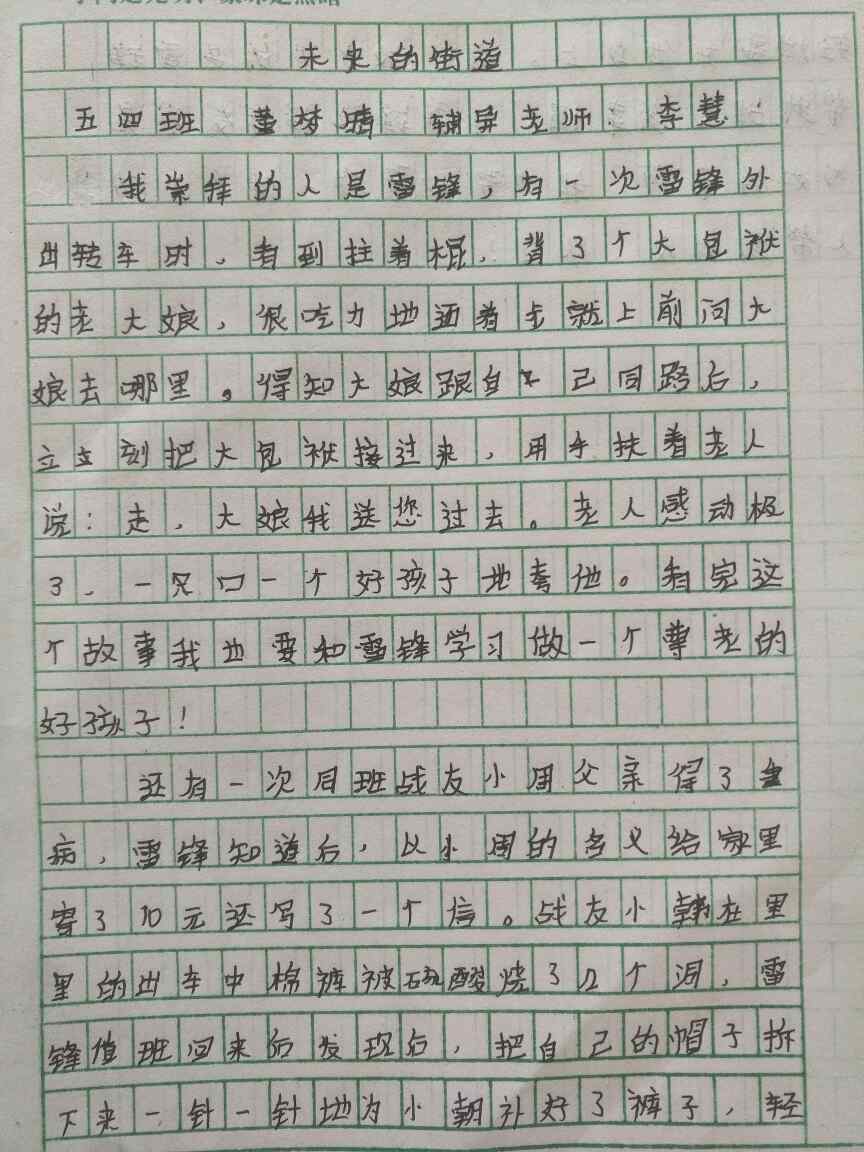 未来的街道
五四班 董梦晴 辅导老师：李慧
我崇拜的人是雷锋，有一次雷锋外
出转车时，看到拄着棍，背了个大包袱
的老大娘，很吃力地迈着步就上前问大
娘去哪里。得知大娘跟自己同路后，
立立刻把大包袱接过来，用手扶着老人
说：走，大娘我送您过去。老人感动极
了，一只口一个好孩子地夸他。看完这
个故事我也要和雷锋学习做一个尊老的
好孩子！
还有一次同班战友小周父亲得了重
病，雷锋知道后，以小周的名义给家里
寄了10元还写了一个信。战友小韩在里
里的出车中棉裤被硫酸烧了几个洞，雷
锋值班回来后发现后，把自己的帽子拆
下来一针一针地为小朝补好了裤子，轻